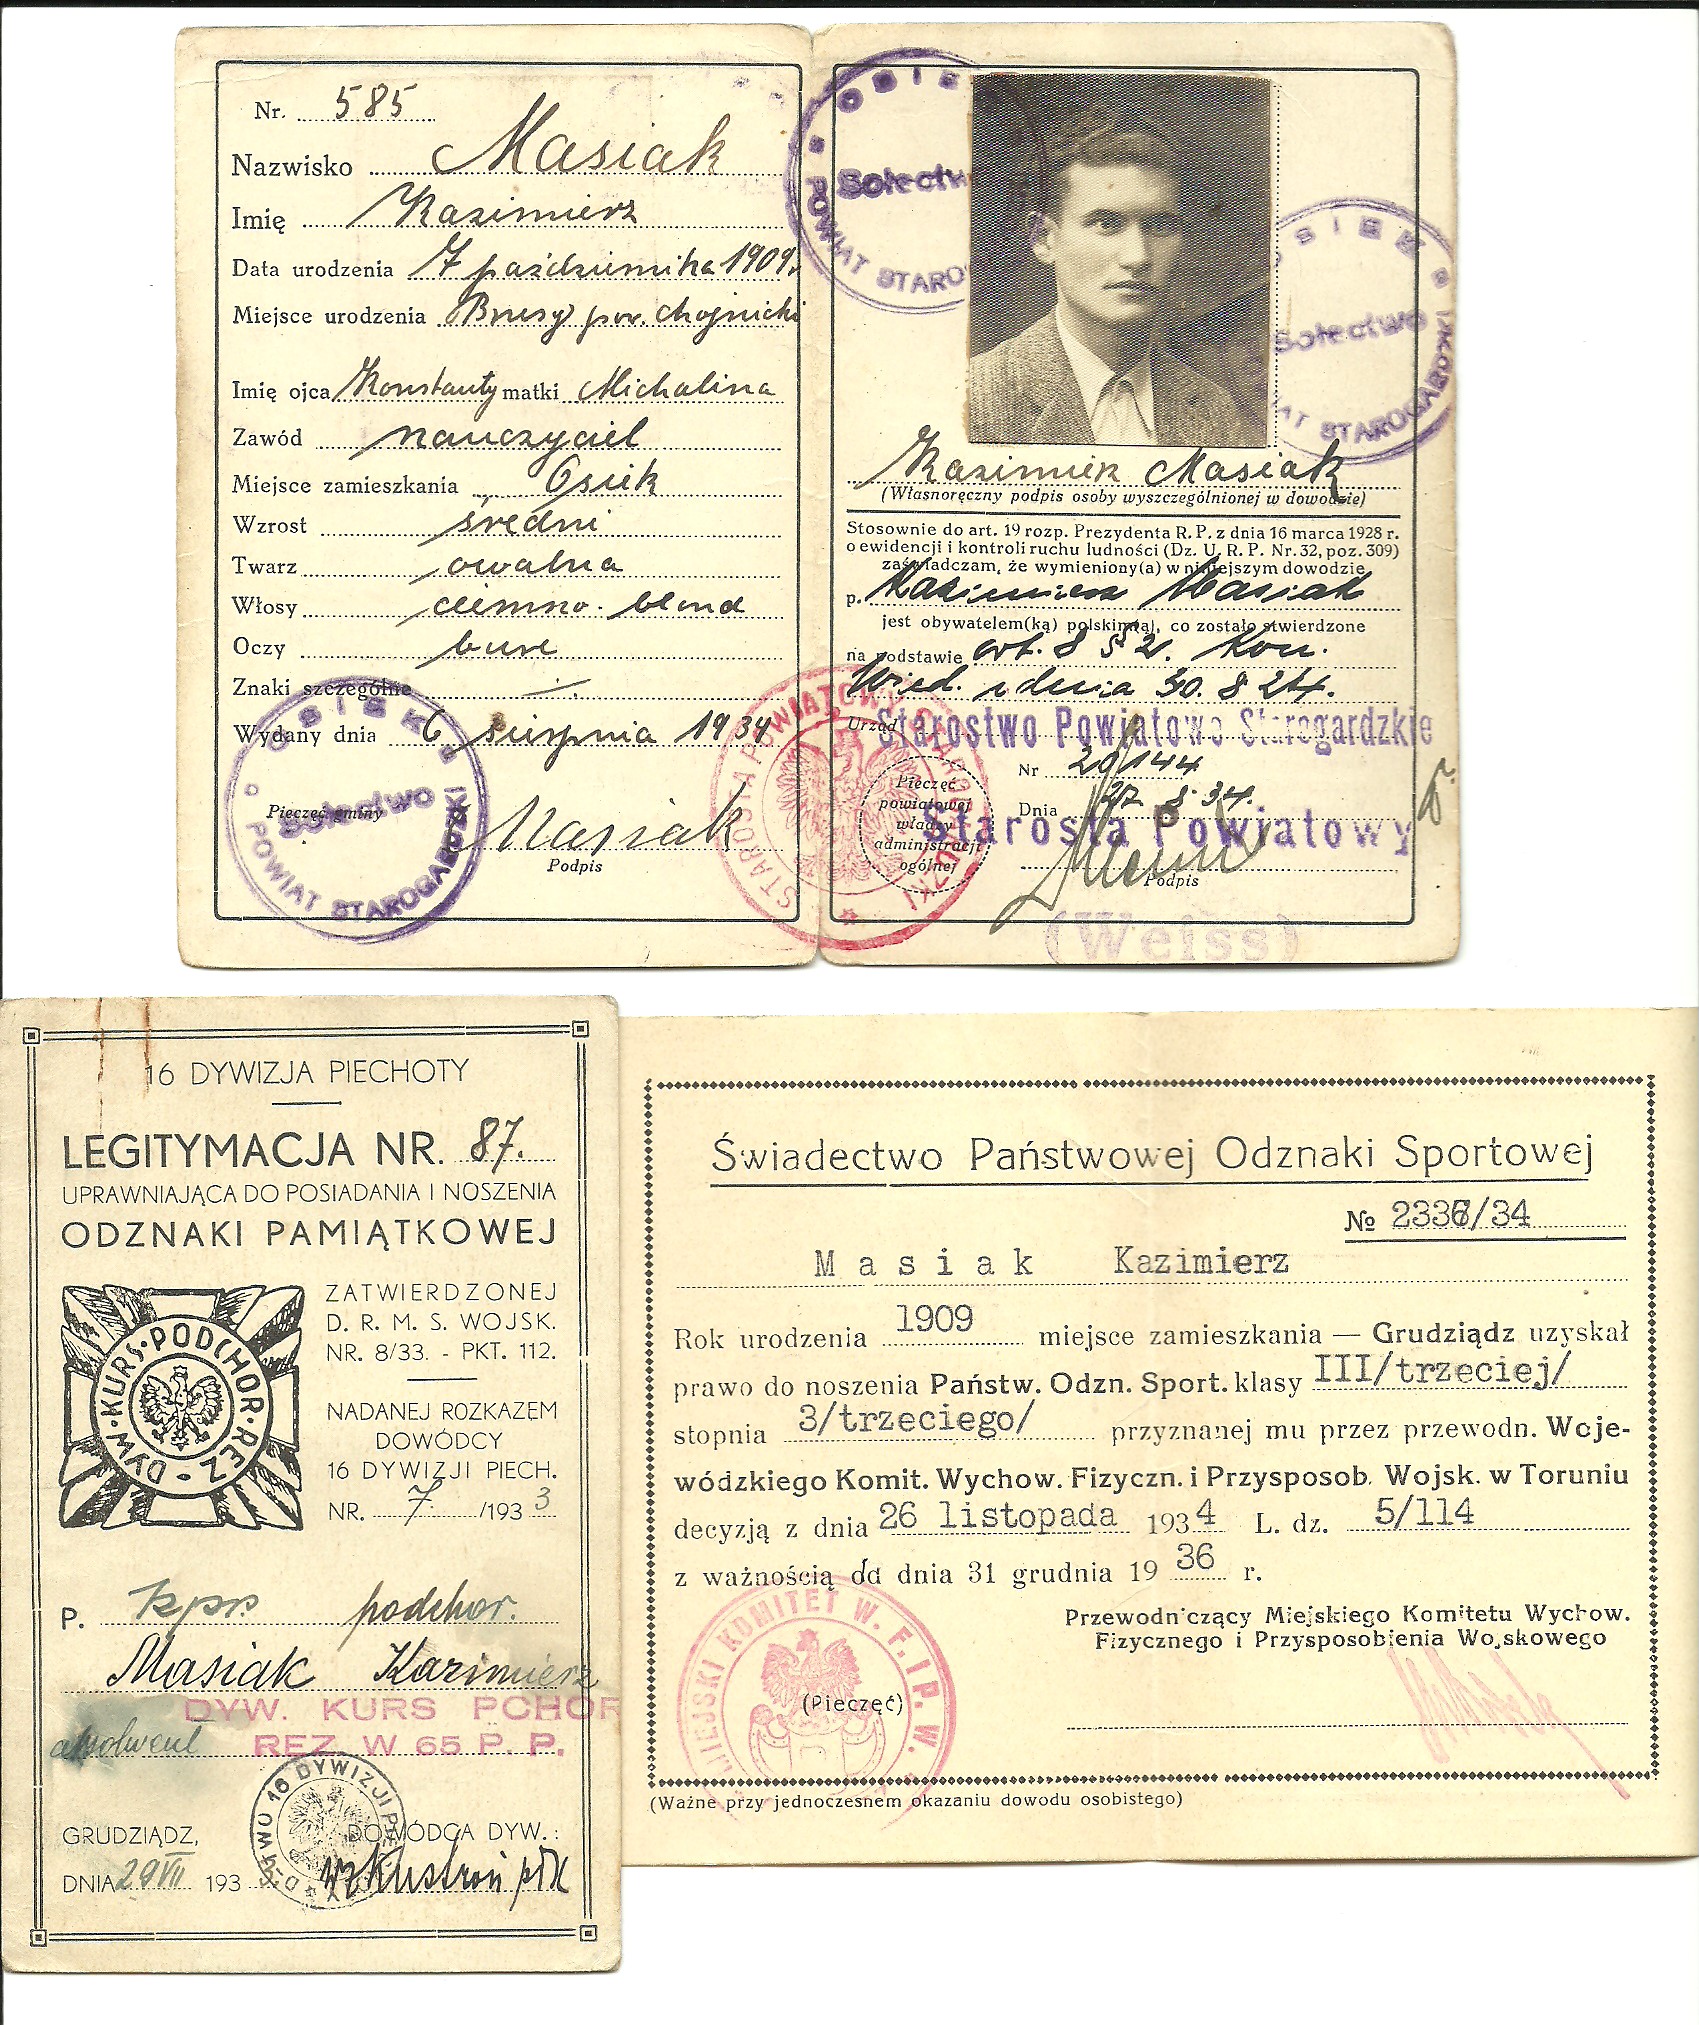 Nr. 585
Nazwisko Masiak
Imię Kazimierz
Data urodzenia 7 października 1909.
Miejsce urodzenia Brusy pow. chojnicki
Imię ojca Konstanty matki Michalina
Zawód nauczyciel
Miejsce zamieszkania Osiek
Wzrost średni
Twarz owalna
Włosy ciemno-blond
Oczy bure
Znaki szczególne
Wydany dnia 6 sierpnia 1934
Pieczęć gminy
OSIEK
Sołectwo
POWIAT STAROGARDZKI
Masiak
Podpis
OSIE
Sołectw
POWIAT STARO
OSIEK
Sołectwo
AT STAROGARDZKI
Kazimierz Masiak
(Własnoręczny podpis osoby wyszczególnionej w dowodzie)
Stosownie do art. 19 rozp. Prezydenta R. P. z dnia 16 marca 1928 r.
o ewidencji i kontroli ruchu ludności (Dz. U. R. P. Nr. 32, poz. 309)
zaświadczam, że wymieniony(a) w niniejszym dowodzie
p. Kazimierz Masiak
jest obywatelem(ką) polskim(ą), co zostało stwierdzone
na podstawie art. 8 § 2. Kon.
Wied. z dnia 30. 8 24.
Urząd Starostwo Powiatowe Starogardzkie
Nr 20/144
Dnia 27. 8 34.
Pieczęć
powiatowej
władzy
administracji
ogólnej
STAROSTA POWIATOWY STAROGARDZKI
Starosta Powiatowy
Podpis
(Weiss)
16 DYWIZJA PIECHOTY
LEGITYMACJA NR. 87.
UPRAWNIAJĄCA DO POSIADANIA I NOSZENIA
ODZNAKI PAMIĄTKOWEJ
DYW·KURS·PODCHOR·REZ
ZATWIERDZONEJ
D. R. M. S. WOJSK.
NR. 8/33. - PKT. 112.
NADANEJ ROZKAZEM
DOWÓDCY
16 DYWIZJI PIECH.
NR. 7. /1933
P. kpr. podchor.
Masiak Kazimierz
DYW. KURS PCHOR
absolwent REZ W 65 P. P.
DÓWO 16 DYWIZJI P
GRUDZIĄDZ, DOWÓDCA DYW.:
DNIA 29 VII 193 wz Kustroń płk
Świadectwo Państwowej Odznaki Sportowej
№ 2336/34
Masiak Kazimierz
Rok urodzenia 1909 miejsce zamieszkania — Grudziądz uzyskał
prawo do noszenia Państw. Odzn. Sport. klasy III/trzeciej/
stopnia 3/trzeciego/ przyznanej mu przez przewodn. Woje-
wódzkiego Komit. Wychow. Fizyczn. i Przysposob. Wojsk. w Toruniu
decyzją z dnia 26 listopada 1934 L. dz. 5/114
z ważnością do dnia 31 grudnia 1936 r.
Przewodniczący Miejskiego Komitetu Wychow.
Fizycznego i Przysposobienia Wojskowego
MIEJSKI KOMITET W. F. I P. W.
(Pieczęć)
(Ważne przy jednoczesnem okazaniu dowodu osobistego)